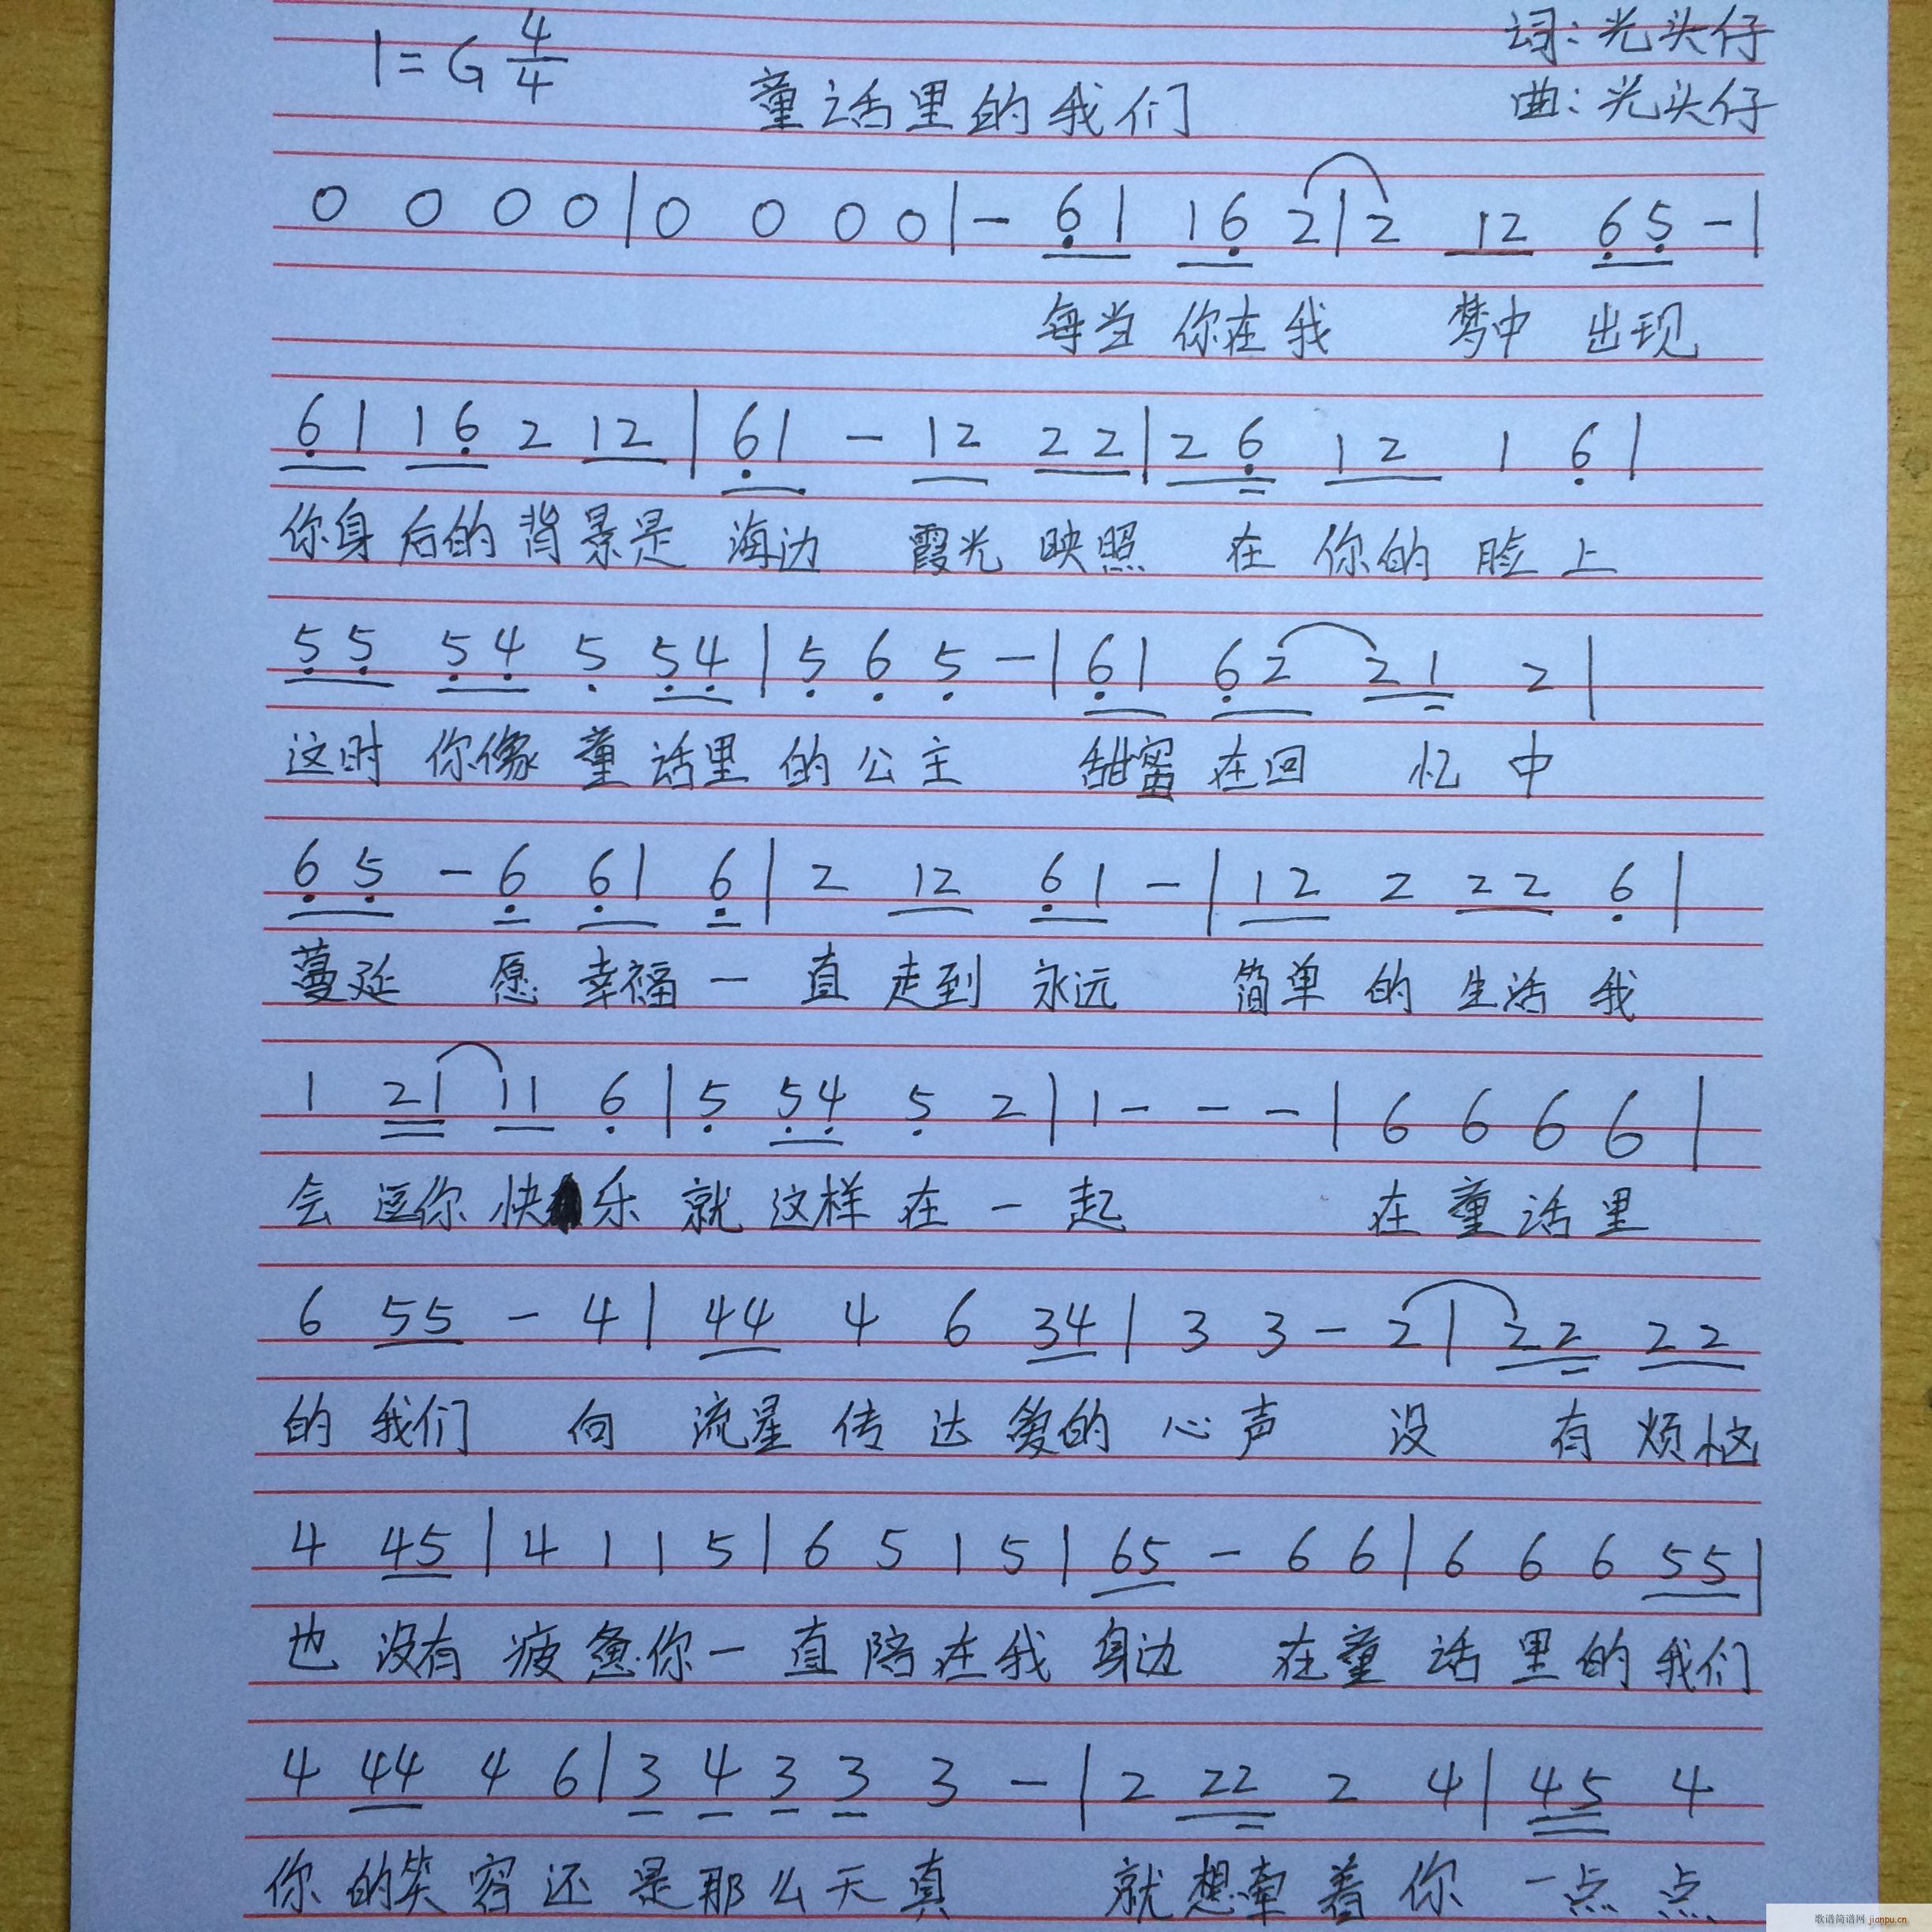 词:光头仔
1=G 4/4 童话里的我们 曲:光头仔
0 0 0 0 | 0 0 0 0 | - 61 16 2 | 2 12 65 - |
每当 你在我 梦中 出现
61 16 2 12 | 61 - 12 22 | 26 12 1 6 |
你身后的背景是 海边 霞光 映照 在 你的 脸上
55 54 5 54 | 5 6 5 - | 61 62 21 2 |
这时 你像 童话里 的 公主 在回 忆 中
65 - 6 61 6 | 2 12 61 - | 12 2 22 6 |
蔓延 愿 幸福 一 直 走到 永远 简单 的 生活 我
1 21 11 6 | 5 54 5 2 | 1 - - - | 6 6 6 6 |
会 逗你 快乐 就 这样 在 一 起 在 童 话 里
6 55 - 4 | 44 4 6 34 | 3 3 - 2 | 22 22
的 我们 向 流星 传 达 的 心 声 没 有 烦恼
4 45 | 4 1 1 5 | 6 5 1 5 | 65 - 6 6 | 6 6 6 55 |
也 没有 疲惫你一 直 陪在我 身边 在童 话 里 的 我们
4 44 4 6 | 3 4 3 3 3 - | 2 22 2 4 | 45 4
你 的笑 容 还 是 那 么 天 真 就 想牵 着 你 一 点 点
歌谱简谱网 jianpu.cn